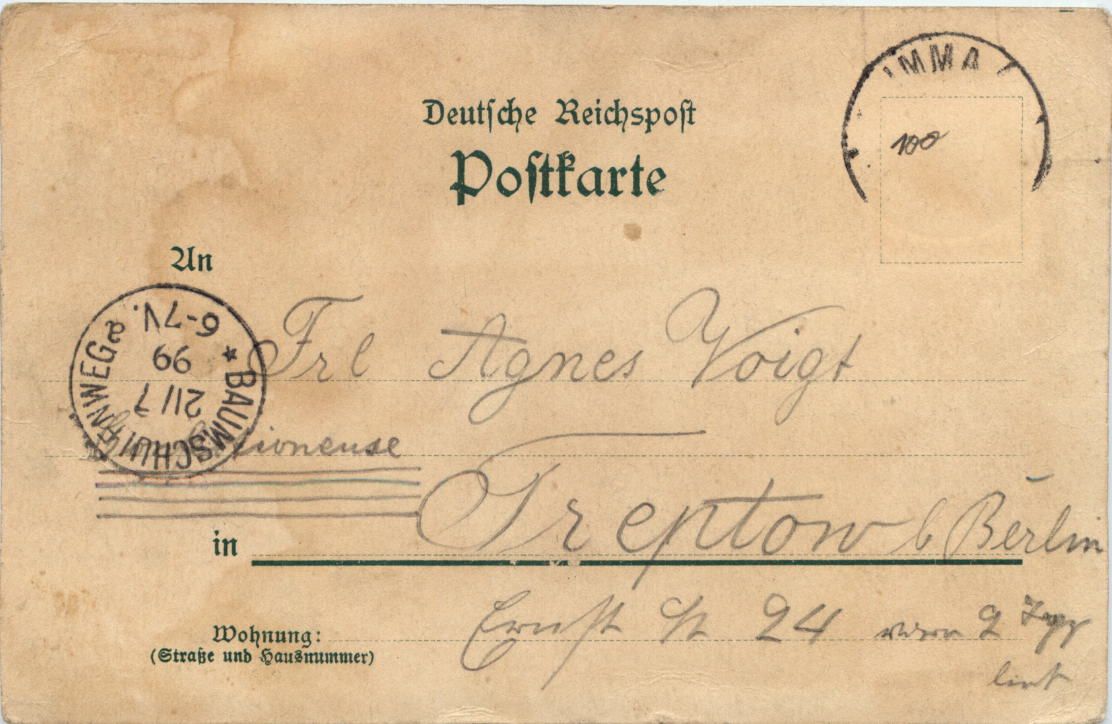 Deutsche Reichspost
Postkarte
IMMA
100
An
BAUMSCHULENWEG a
21/7
99
6-7V.
Frl Agnes Voigt
in Treptow b Berlin
Wohnung:
(Straße und Hausnummer)
Ernst St 24 vorn 2 Trpp
links